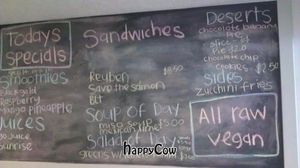 Todays
Specials
Smoothies
Blackgold
Raspberry
Mango Pineapple
Juices
Go Juice
Sunrise
Sandwiches
Reuben
$8.50
Save the salmon
BLT
Soup of Day
Miso Soup $5.00
Salad of Day
greens w
Deserts
chocolate banana
Pie
slice $
Pie $20
chocolate chip
cookies - $2.50
Sides
Zucchini Fries
All raw
vegan
HappyCow